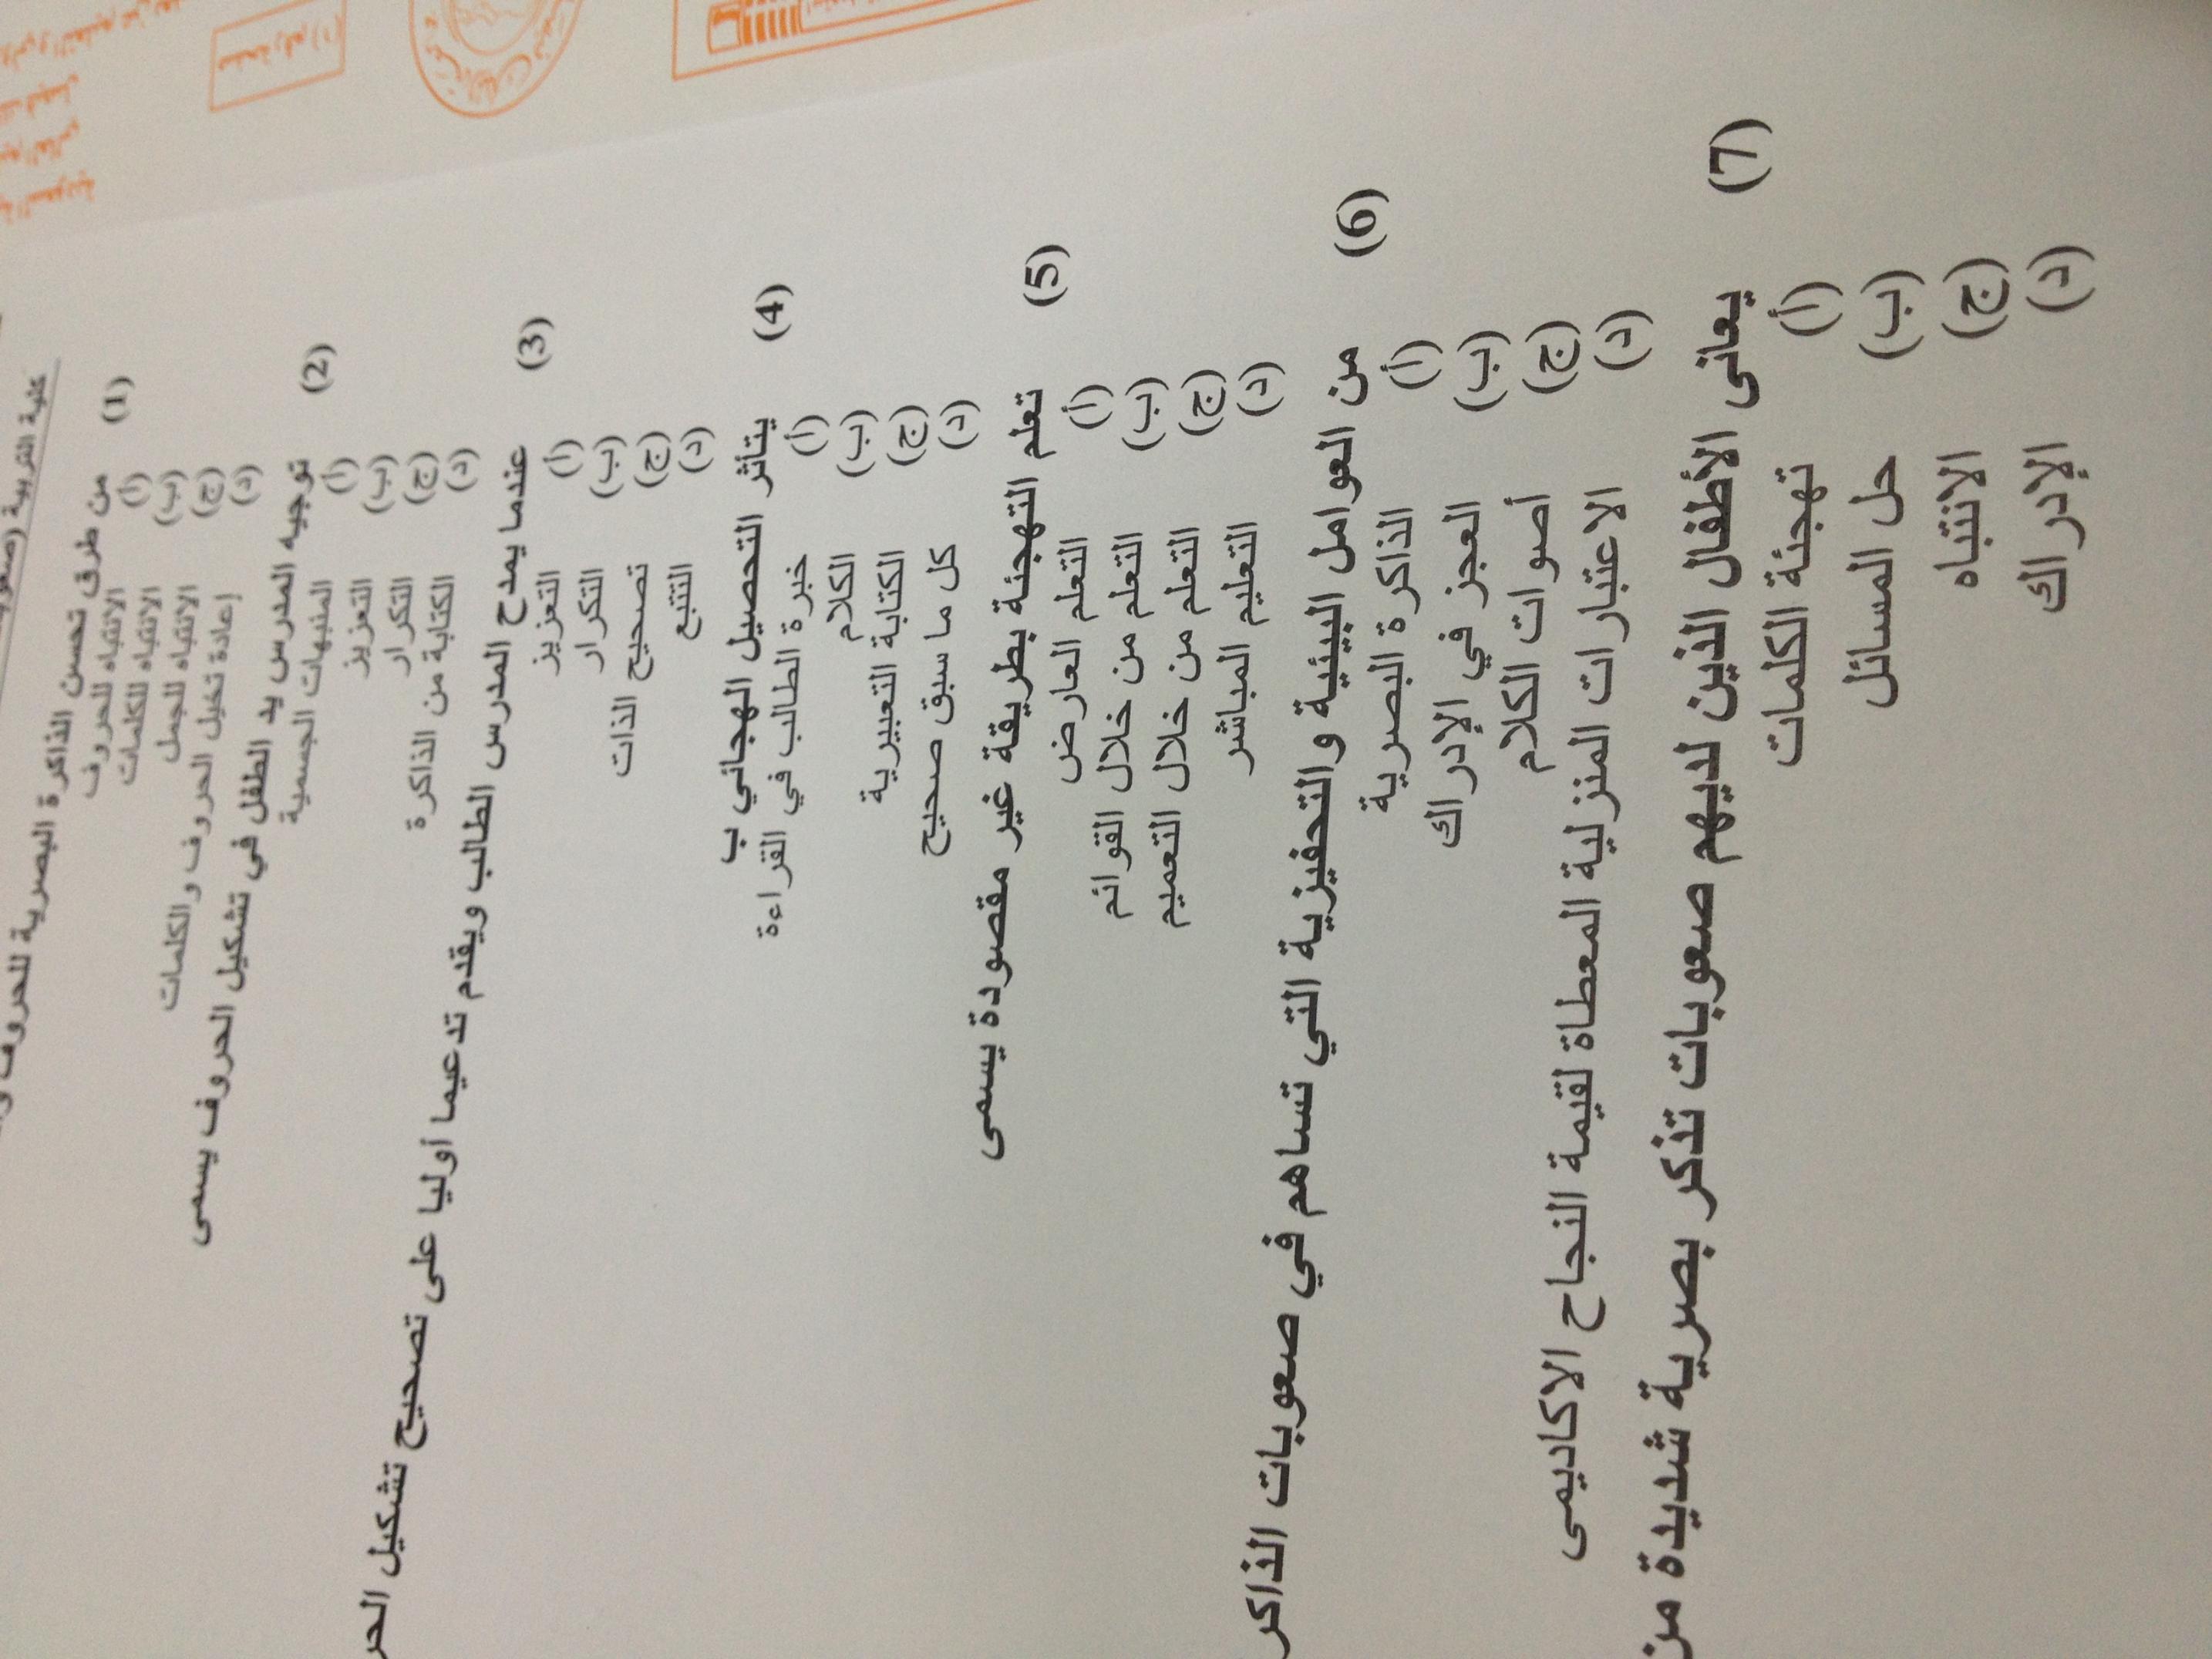 كلية التربية
(1) من طرق تحسن الذاكرة البصرية للحروف
(أ) الانتباه للحروف
(ب) الانتباه للكلمات
(ج) الانتباه للجمل
(د) إعادة تخيل الحروف والكلمات
(2) توجيه المدرس يد الطفل في تشكيل الحروف يسمى
(أ) المنبهات الجسمية
(ب) التعزيز
(ج) التكرار
(د) الكتابة من الذاكرة
(3) عندما يمدح المدرس الطالب ويقدم تدعيما أوليا على تصحيح تشكيل
(أ) التعزيز
(ب) التكرار
(ج) تصحيح الذات
(د) التتبع
(4) يتأثر التحصيل الهجائي ب
(أ) خبرة الطالب في القراءة
(ب) الكلام
(ج) الكتابة التعبيرية
(د) كل ما سبق صحيح
(5) تعلم التهجئة بطريقة غير مقصودة يسمى
(أ) التعلم العارض
(ب) التعلم من خلال القوائم
(ج) التعلم من خلال التعميم
(د) التعليم المباشر
(6) من العوامل البيئية والتحفيزية التي تساهم في صعوبات
(أ) الذاكرة البصرية
(ب) العجز في الإدراك
(ج) أصوات الكلام
(د) الاعتبارات المنزلية المعطاة لقيمة النجاح الاكاديمى
(7) يعانى الأطفال الذين لديهم صعوبات تذكر بصرية شديدة من
(أ) تهجئة الكلمات
(ب) حل المسائل
(ج) الانتباه
(د) الإدراك